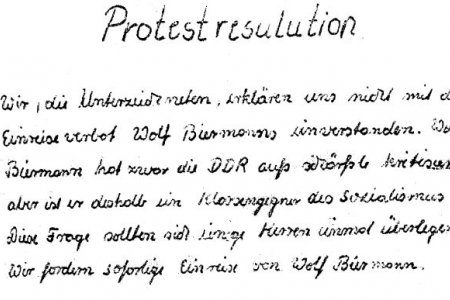 Protestresulution
Wir, die Unterzeichneten, erklären uns nicht mit d
Einreiseverbot Wolf Biermanns einverstanden. Wo
Biermann hat zwar die DDR aufs schärfste kritisier
aber ist er deshalb ein Klassengegner des Sozialismus
Diese Frage sollten sich einige Herren einmal überlegen
Wir fordern sofortige Einreise von Wolf Biermann.